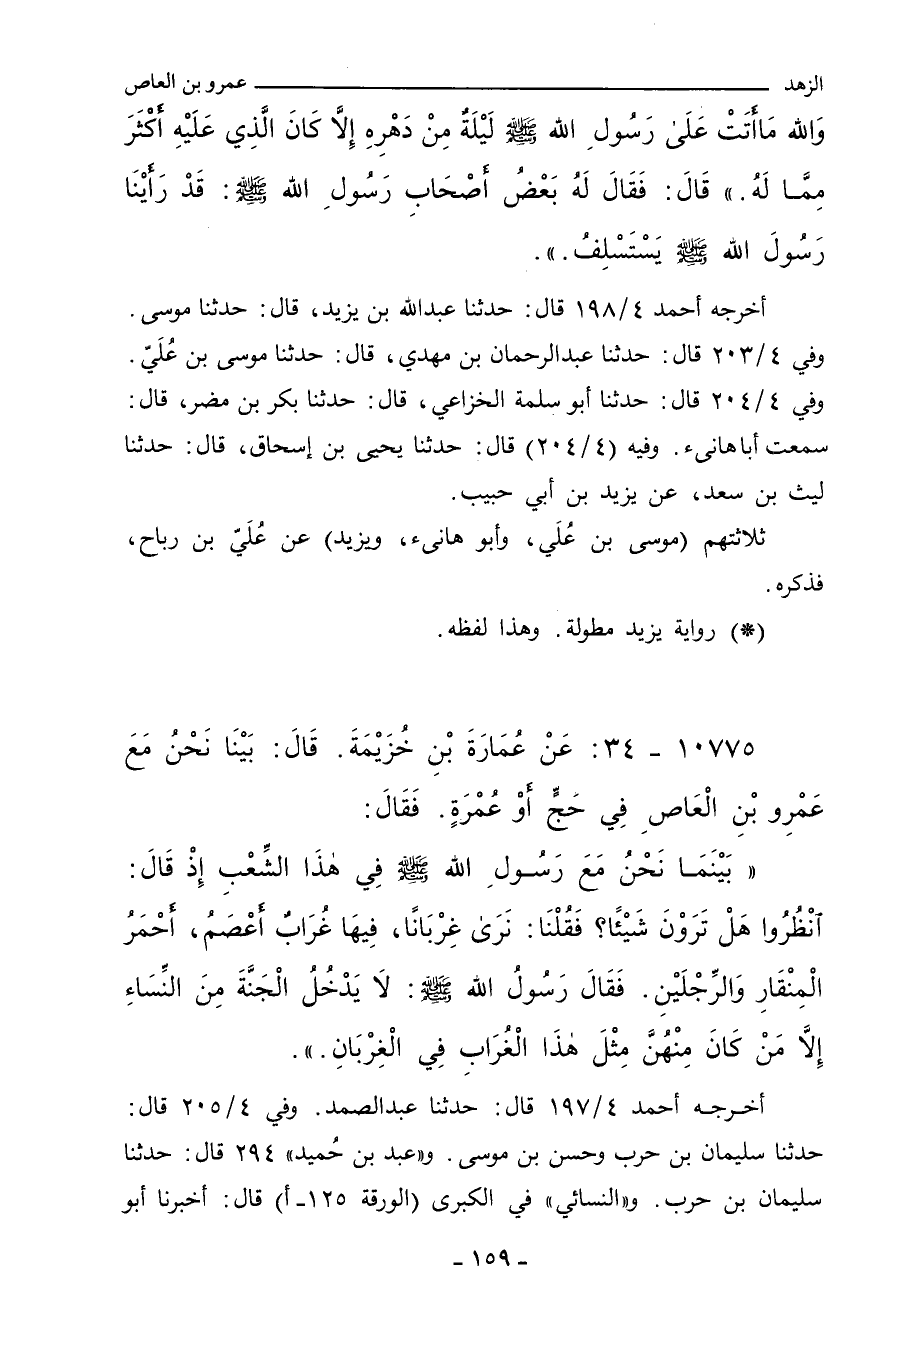 الزهد ــــــــــــــــــــ عمرو بن العاص
وَالله مَاأَتَتْ عَلَىٰ رَسُولِ الله ﷺ لَيْلَةٌ مِنْ دَهْرِهِ إِلَّا كَانَ الَّذِي عَلَيْهِ أَكْثَرَ
مِمَّا لَهُ.» قَالَ: فَقَالَ لَهُ بَعْضُ أَصْحَابِ رَسُولِ الله ﷺ: قَدْ رَأَيْنَا
رَسُولَ الله ﷺ يَسْتَسْلِفُ.».
أخرجه أحمد ١٩٨/٤ قال: حدثنا عبدالله بن يزيد، قال: حدثنا موسى.
وفي ٢٠٣/٤ قال: حدثنا عبدالرحمان بن مهدي، قال: حدثنا موسى بن عُلَيّ.
وفي ٢٠٤/٤ قال: حدثنا أبو سلمة الخزاعي، قال: حدثنا بكر بن مضر، قال:
سمعت أباهانىء. وفيه (٢٠٤/٤) قال: حدثنا يحيى بن إسحاق، قال: حدثنا
ليث بن سعد، عن يزيد بن أبي حبيب.
ثلاثتهم (موسى بن عُلَي، وأبو هانىء، ويزيد) عن عُلَيّ بن رباح،
فذكره.
(*) رواية يزيد مطولة. وهذا لفظه.
١٠٧٧٥ - ٣٤: عَنْ عُمَارَةَ بْنِ خُزَيْمَةَ. قَالَ: بَيْنَا نَحْنُ مَعَ
عَمْرِو بْنِ الْعَاصِ فِي حَجٍّ أَوْ عُمْرَةٍ. فَقَالَ:
« بَيْنَمَا نَحْنُ مَعَ رَسُولِ الله ﷺ فِي هٰذَا الشِّعْبِ إِذْ قَالَ:
ٱنْظُرُوا هَلْ تَرَوْنَ شَيْئًا؟ فَقُلْنَا: نَرَىٰ غِرْبَانًا، فِيهَا غُرَابٌ أَعْصَمُ، أَحْمَرُ
الْمِنْقَارِ وَالرِّجْلَيْنِ. فَقَالَ رَسُولُ الله ﷺ: لَا يَدْخُلُ الْجَنَّةَ مِنَ النِّسَاءِ
إِلَّا مَنْ كَانَ مِنْهُنَّ مِثْلَ هٰذَا الْغُرَابِ فِي الْغِرْبَانِ.».
أخرجه أحمد ١٩٧/٤ قال: حدثنا عبدالصمد. وفي ٢٠٥/٤ قال:
حدثنا سليمان بن حرب وحسن بن موسى. و«عبد بن حُميد» ٢٩٤ قال: حدثنا
سليمان بن حرب. و«النسائي» في الكبرى (الورقة ١٢٥-أ) قال: أخبرنا أبو
- ١٥٩ -